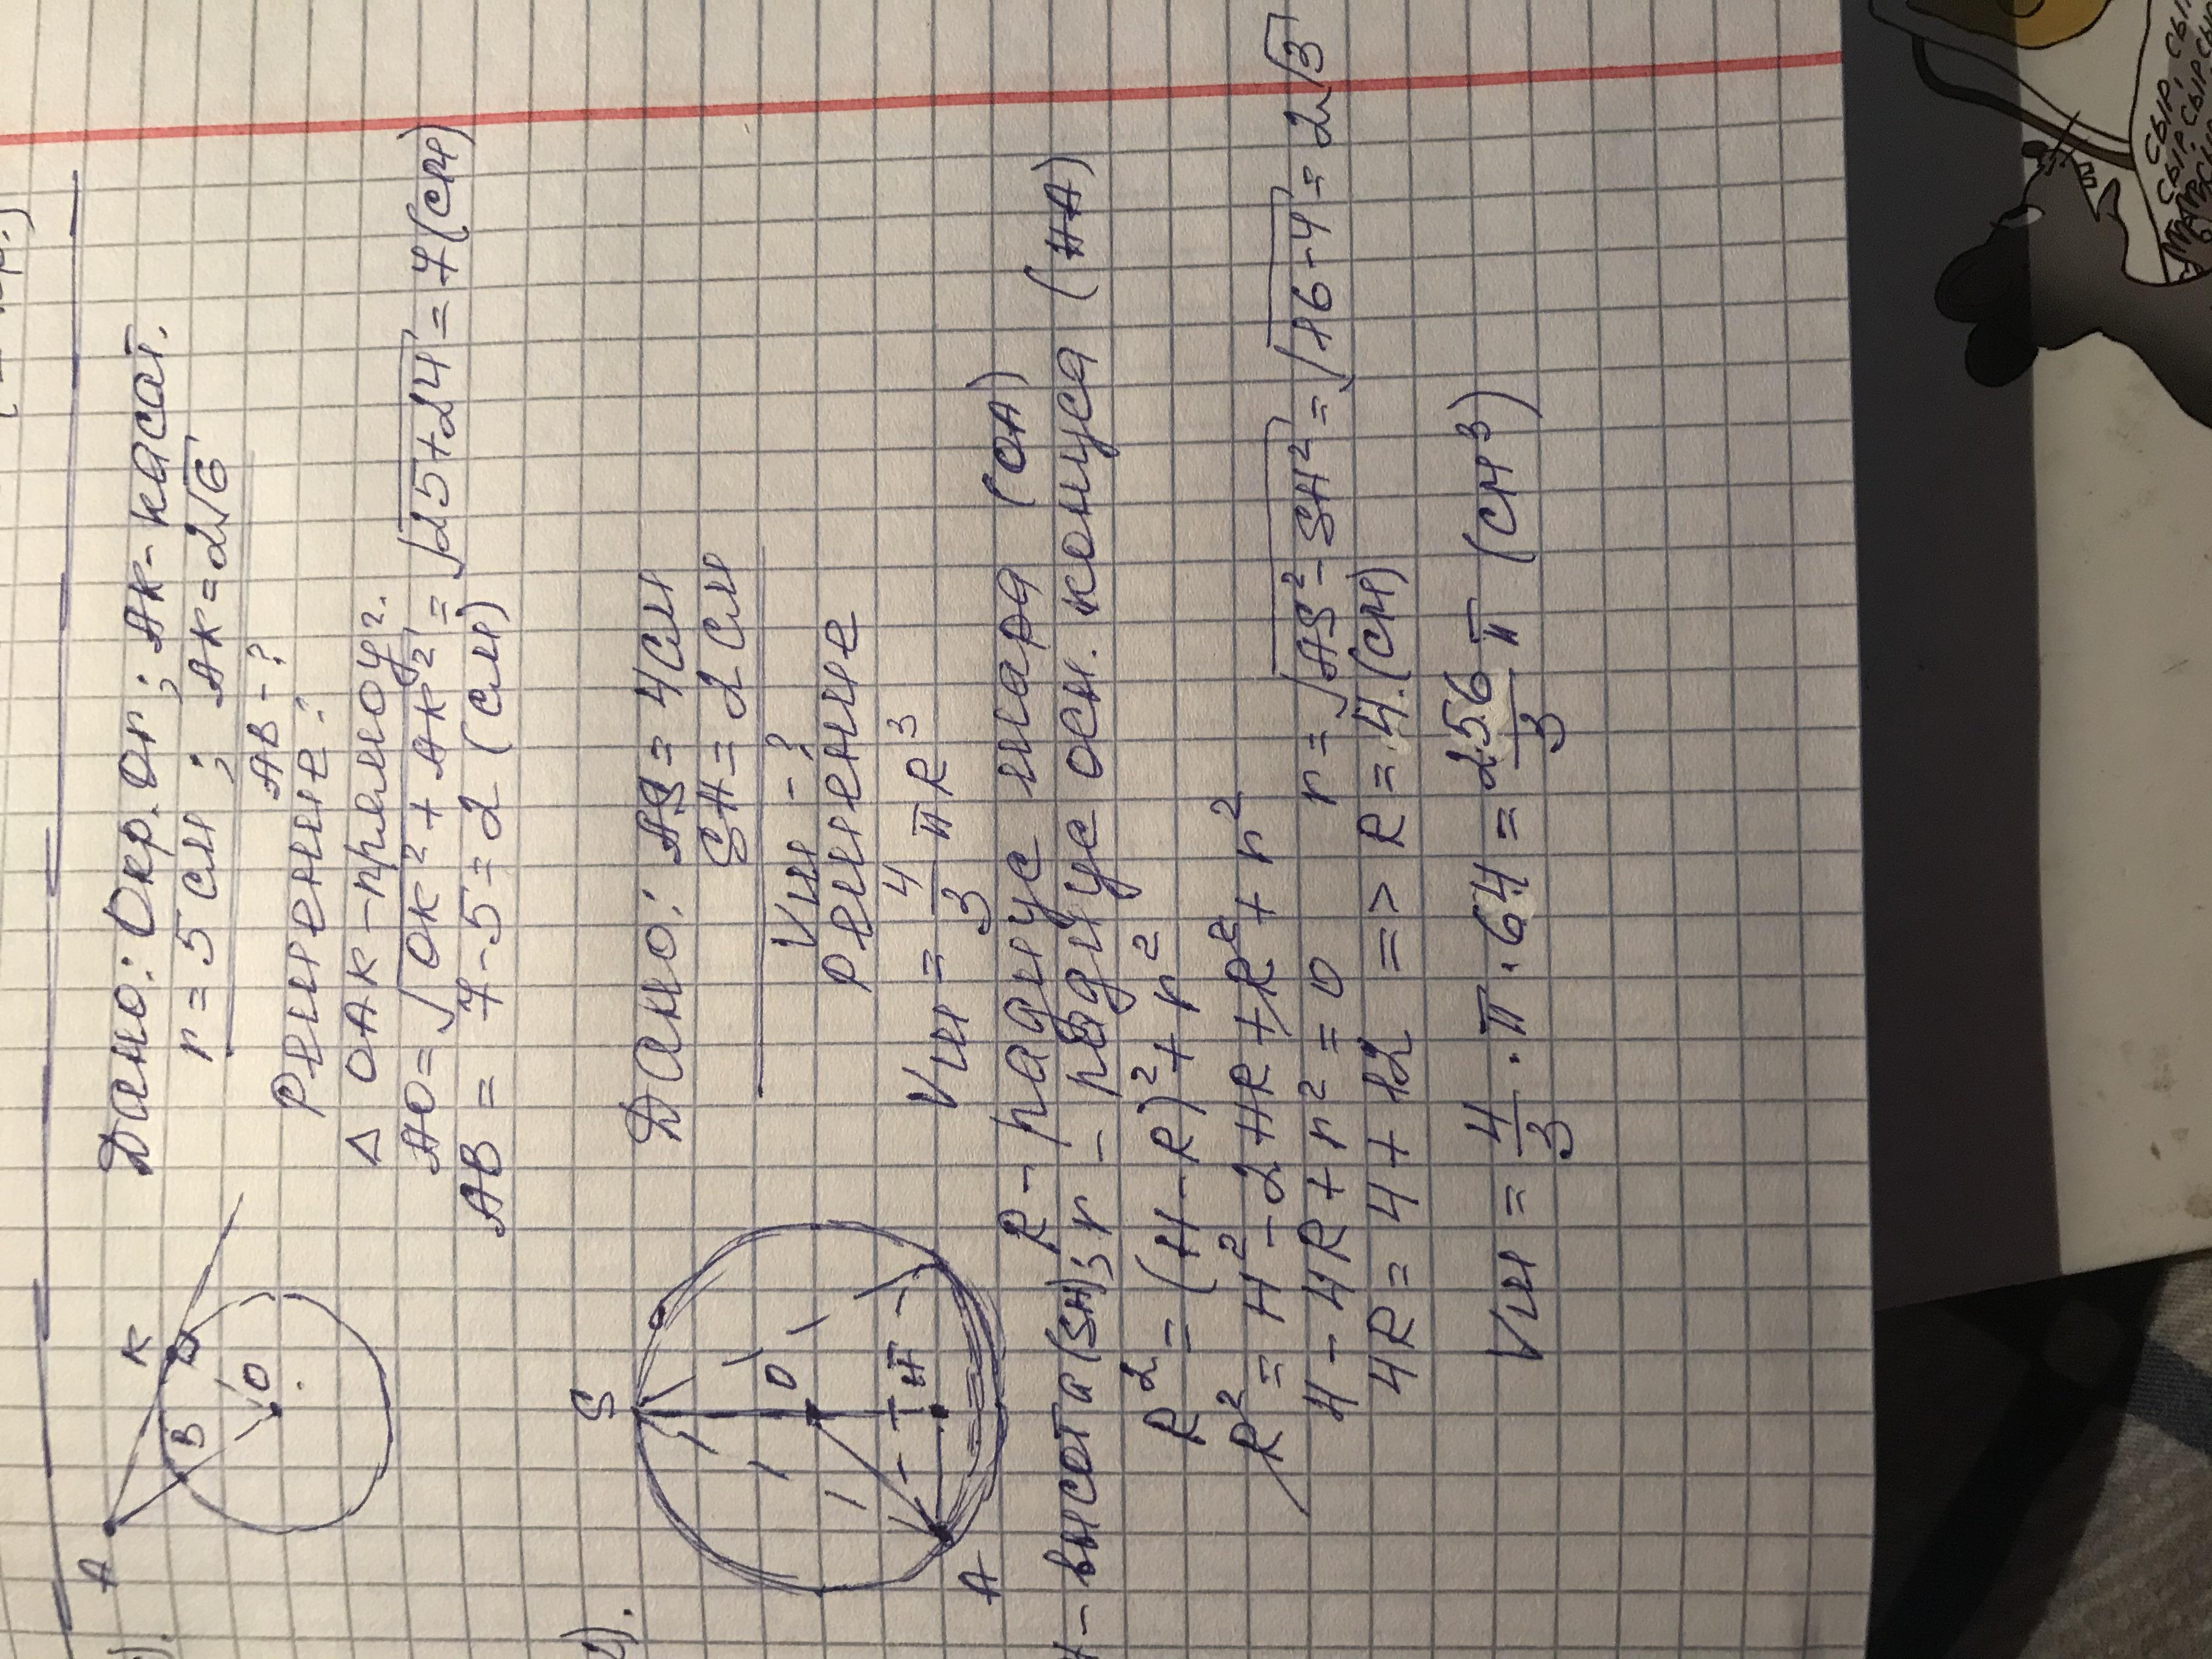 Дано: Окр. Or; АК-касат.
r = 5 см; АК = 2√6
АВ - ?
Решение:
Δ ОАК - прямоуг.
АО = √ОК² + АК² = √25+24 = 7 (см)
АВ = 7-5 = 2 (см)
А
К
В
О
Дано: AS = 4 см
SH = 2 см
Vш - ?
Решение
Vш = 4/3 πR³
S
О
Н
А
R - радиус шара (ОА)
Н - высота (SH); r - радиус осн. конуса (НА)
R² = (H-R)² + r²
R² = H² - 2HR + R² + r²
4 - 4R + r² = 0 r = √AS² - SH² = √16-4 = 2√3
4R = 4 + 12 => R = 4 (см)
Vш = 4/3 · π · 64 = 256/3 π (см³)
СЫР, СЫР
СЫР, СЫР, СЫР